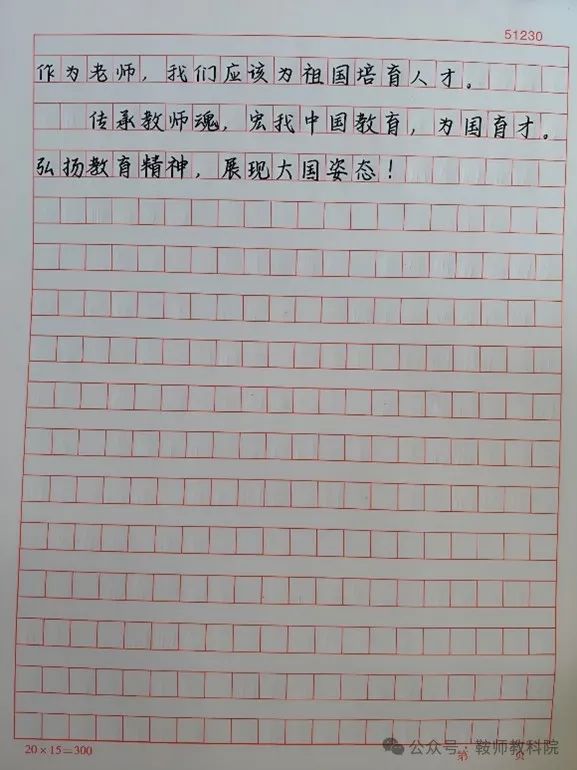 51230
作为老师，我们应该为祖国培育人才。
传承教师魂，宏我中国教育，为国育才。
弘扬教育精神，展现大国姿态！
20×15=300
第 页
公众号·鞍师教科院